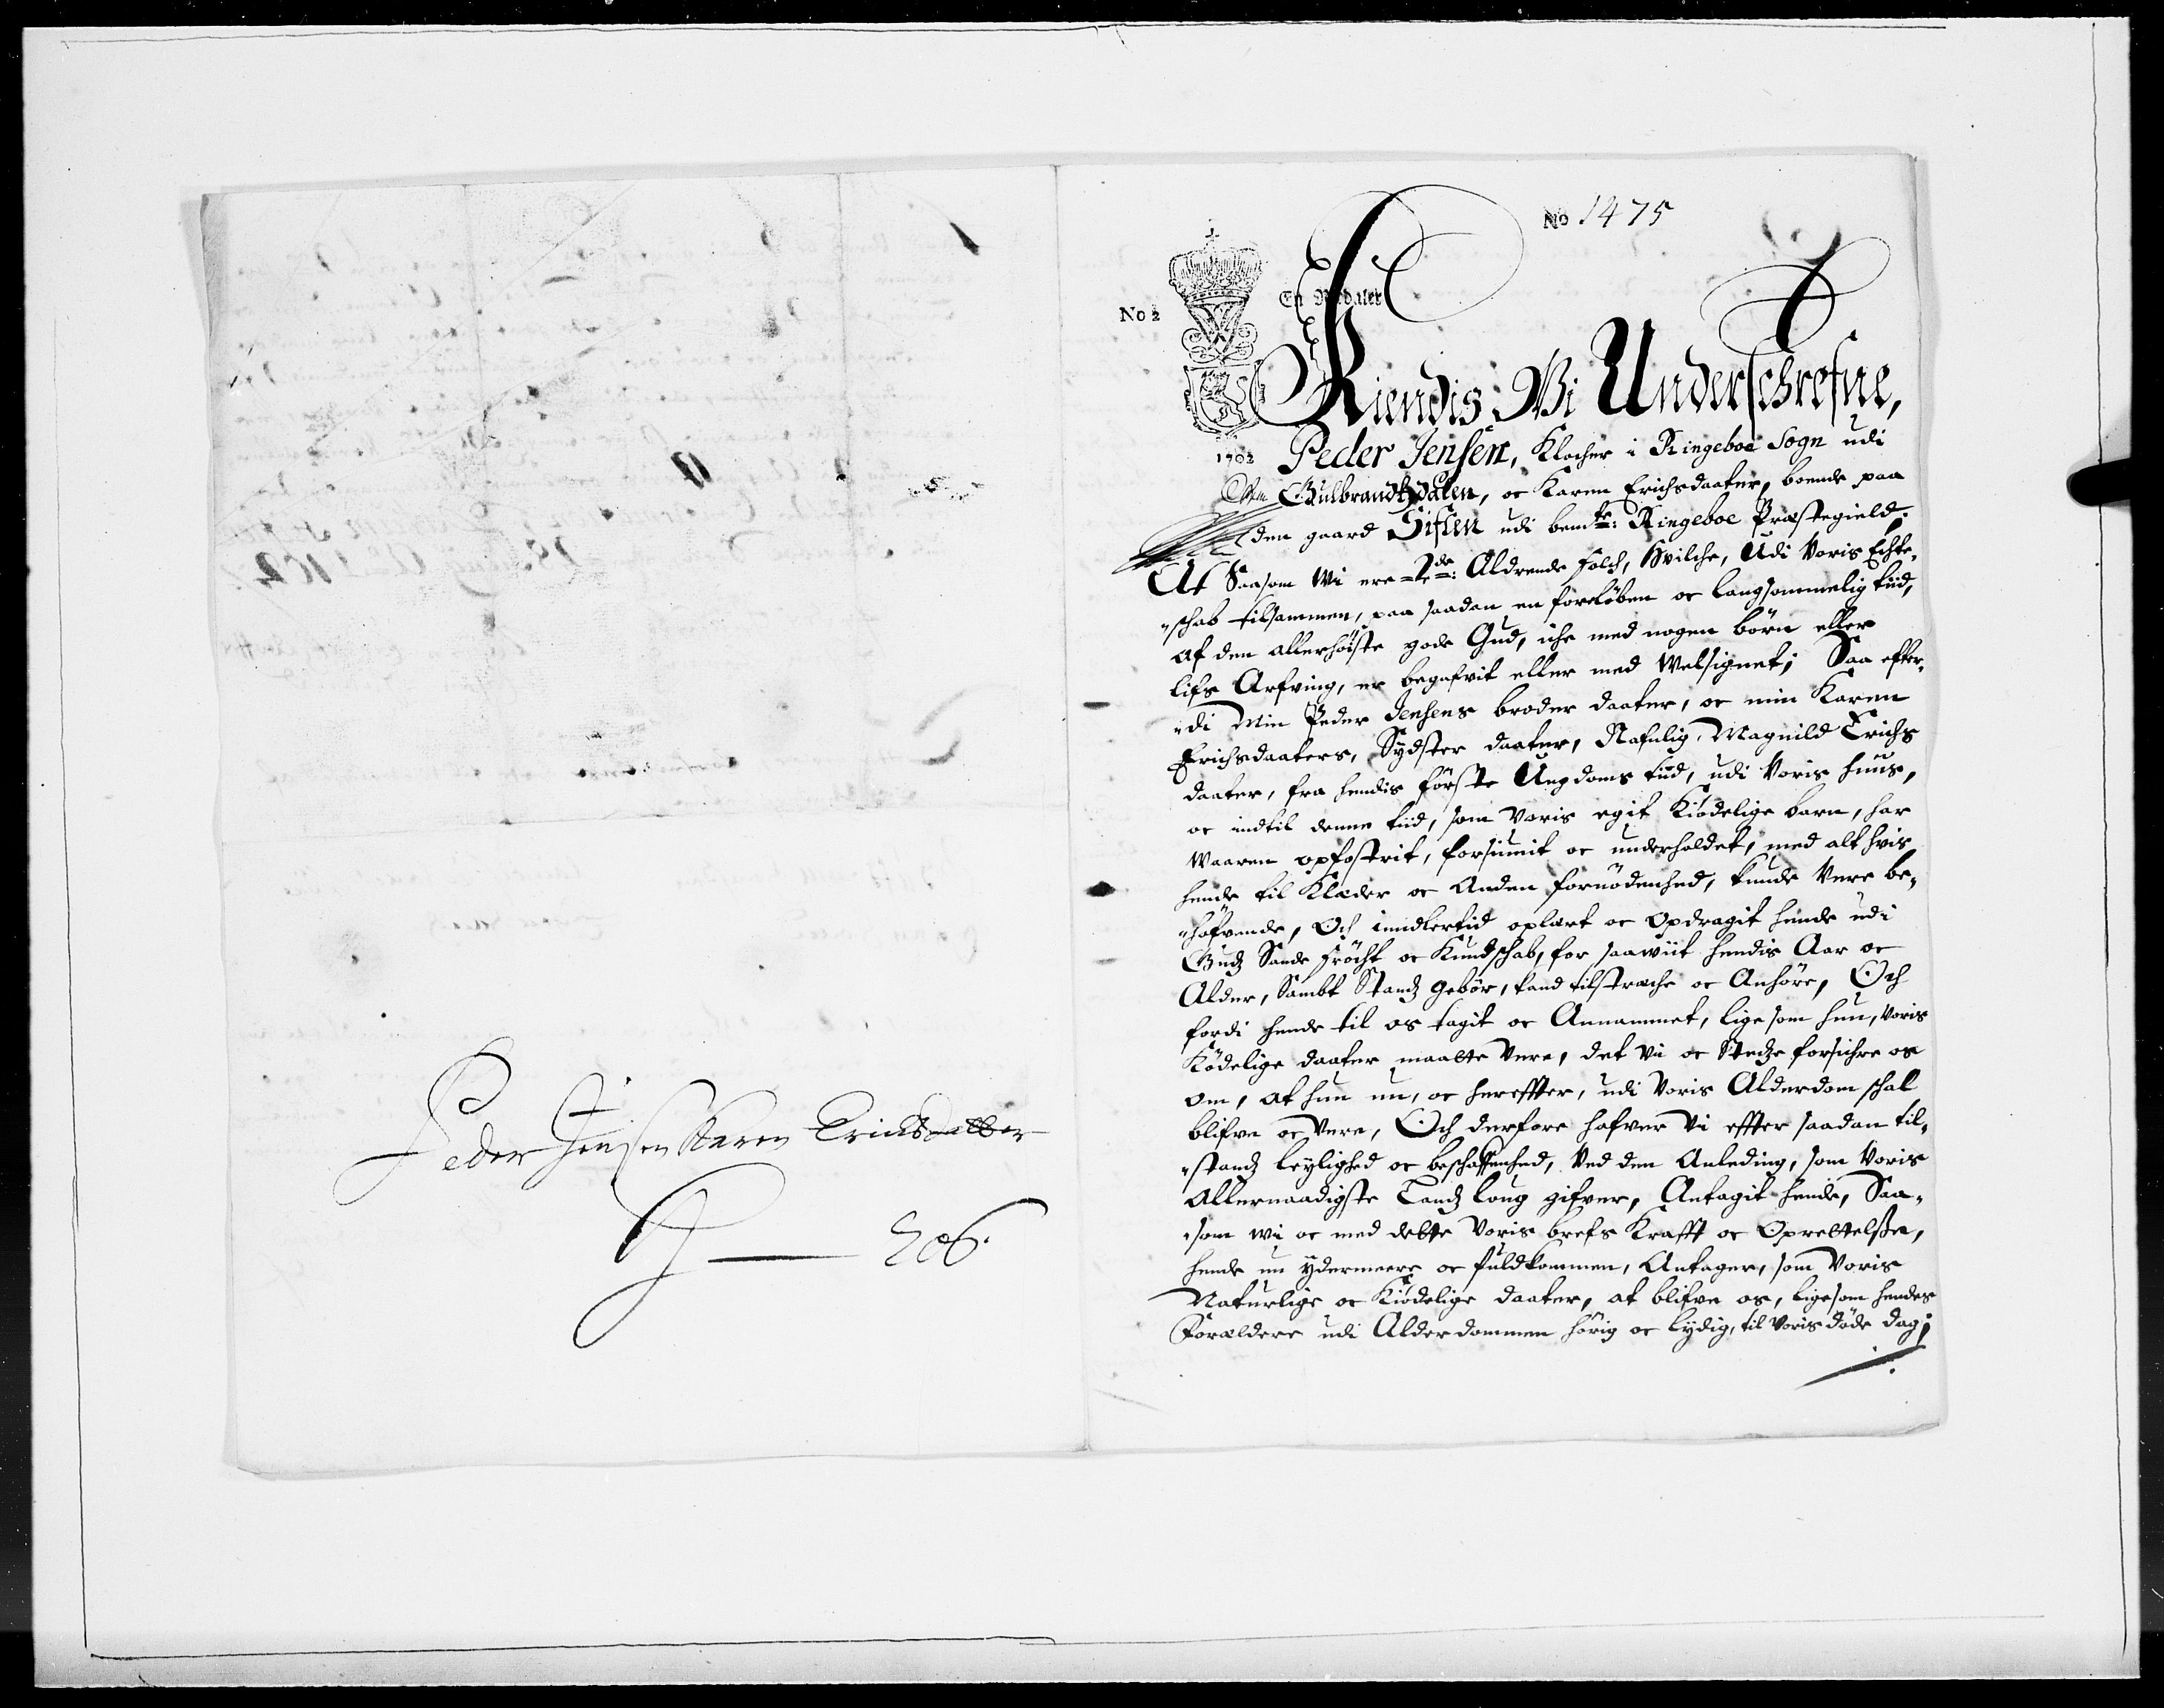 Peder Jensen Karen Erichsdatter
206.
No 1475
No 2
En Rixdaler
Kiendis Wi Underschrefne,
1702 Peder Jensen, Klocher i Ringeboe Sogn udi
Gulbrandtzdalen, oc Karen Erichsdaater, boende paa
den gaard Siflen udi bemte: Ringeboe Præstegield.
At Saasom Wi ere Aldrende folch, hvilche, Udi Voris Echte-
schab tilsammen, paa saadan en forløben oc langsommelig tiid,
af den allerhøiste gode Gud, iche med nogen børn eller
lifs Arfving, er begafvit eller med Welsignet; Saa efter-
di Min Peder Jensens broder daater, oc min Karen
Erichsdaaters, Sydster daater, Nafnlig, Magnild Erichs
daater, fra hendis første Ungdoms tiid, udi Voris huus,
oc indtil denne tiid, som voris egit Kiødelige barn, har
Waaren opfostrit, forsiunit oc underholdet, med alt hvis
hende til Klæder oc Anden fornødenhed, kunde Vere be-
høfvende, Och imidlertid oplært oc Opdragit hende udi
Gudz Sande frøcht oc Kundschab, for saawiit hendis Aar oc
Alder, Sambt Standz gebør, kand tilstræche oc Anhøre, Och
fordi hende til os tagit oc Annammet, lige som hun, voris
Kødelige daater maatte Vere, det vi oc Stedze forsichre os
om, at hun nu, oc hereffter, udi Voris Alderdom schal
blifve oc Vere, Och derfore hafver Vi effter saadan til-
standz leylighed oc beschaffenhed, Ved den Anleding, som Voris
Allernaadigste Landz loug gifver, Antagit hende, Saa-
som wi oc med dette Voris brefs Krafft oc Oprettelsse,
hende nu ydermeere oc fuldkommen, Antager, som Voris
Naturlige oc Kiødelige daater, at blifve os, ligesom hendes
Forældere udi Alderdommen hørig oc lydig, til Voris døde dag;